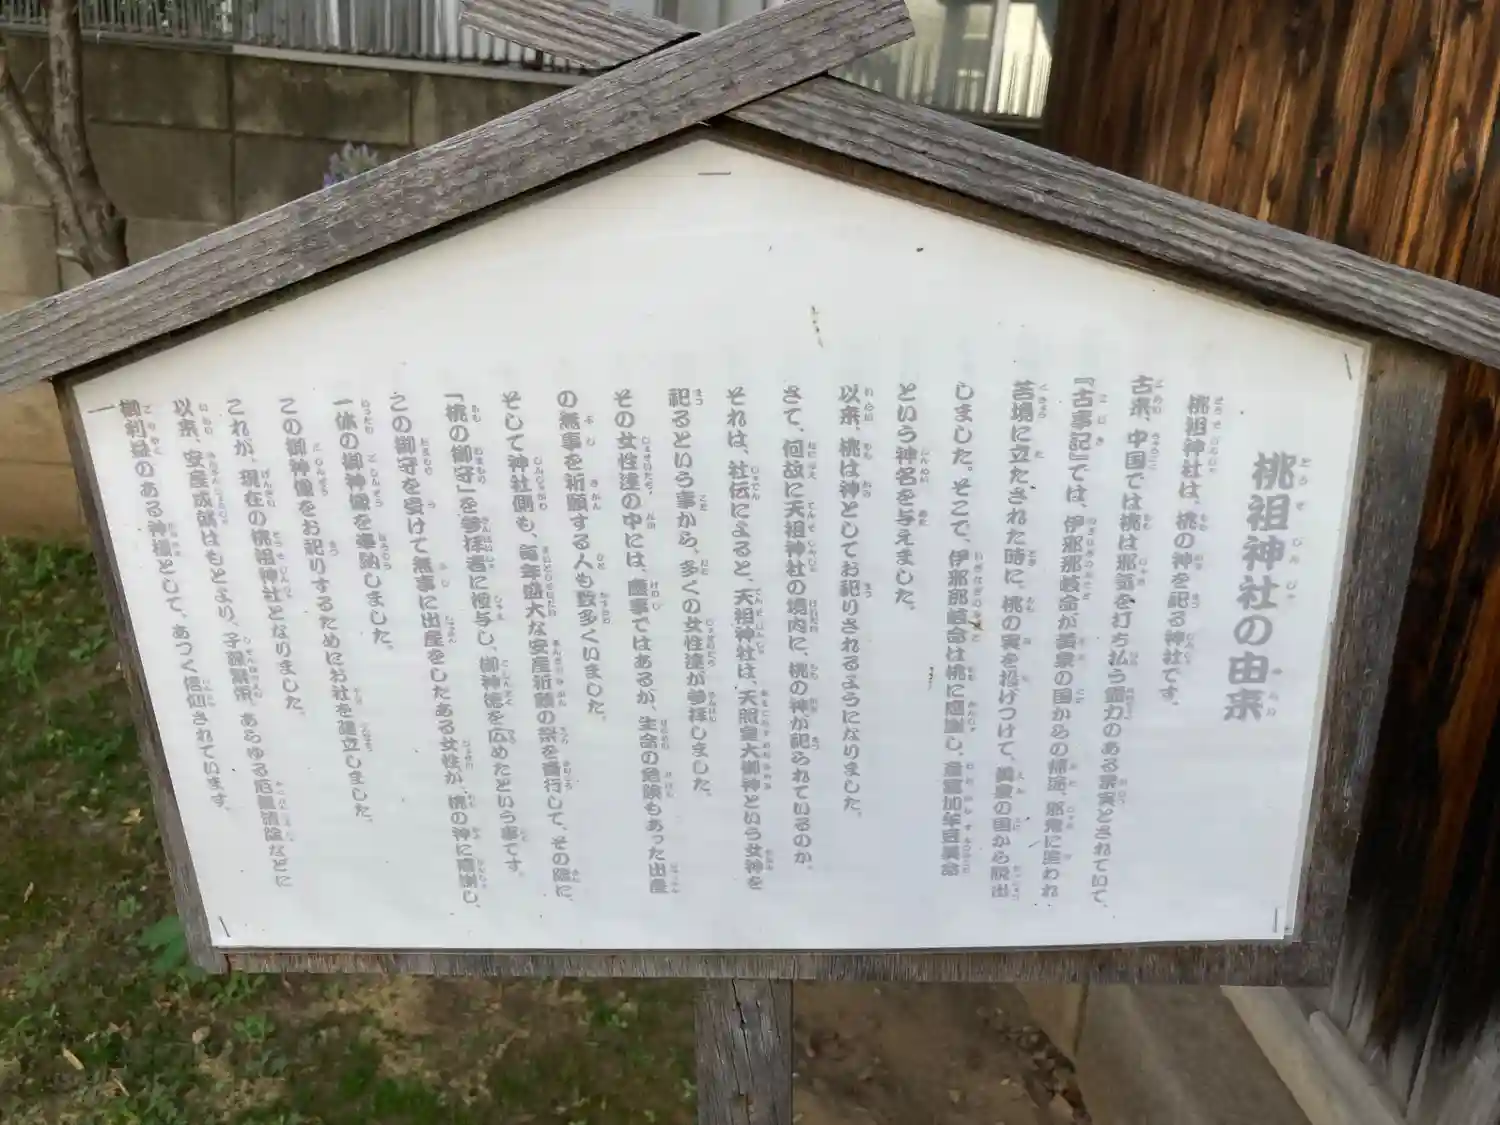 桃祖神社の由来
桃祖神社は、桃の神を祀る神社です。
古来、中国では桃は邪気を打ち払う霊力のある果実とされていて、
『古事記』では、伊邪那岐命が黄泉の国からの帰途、邪鬼に追われ
苦境に立たされた時に、桃の実を投げつけて、黄泉の国から脱出
しました。そこで、伊邪那岐命は桃に感謝し、意富加牟豆美命
という神名を与えました。
以来、桃は神としてお祀りされるようになりました。
さて、何故に天祖神社の境内に、桃の神が祀られているのか。
それは、社伝によると、天祖神社は、天照皇大御神という女神を
祀るという事から、多くの女性達が参拝しました。
その女性達の中には、慶事ではあるが、生命の危険もあった出産
の無事を祈願する人も数多くいました。
そして神社側も、毎年盛大な安産祈願の祭を斎行して、その際に、
「桃の御守」を参拝者に授与し、御神徳を広めたという事です。
この御守を受けて無事に出産をしたある女性が、桃の神に感謝し、
一体の御神像を奉納しました。
この御神像をお祀りするためにお社を建立しました。
これが、現在の桃祖神社となりました。
以来、安産成就はもとより、子孫繁栄、あらゆる厄難消除などに
御利益のある神様として、あつく信仰されています。